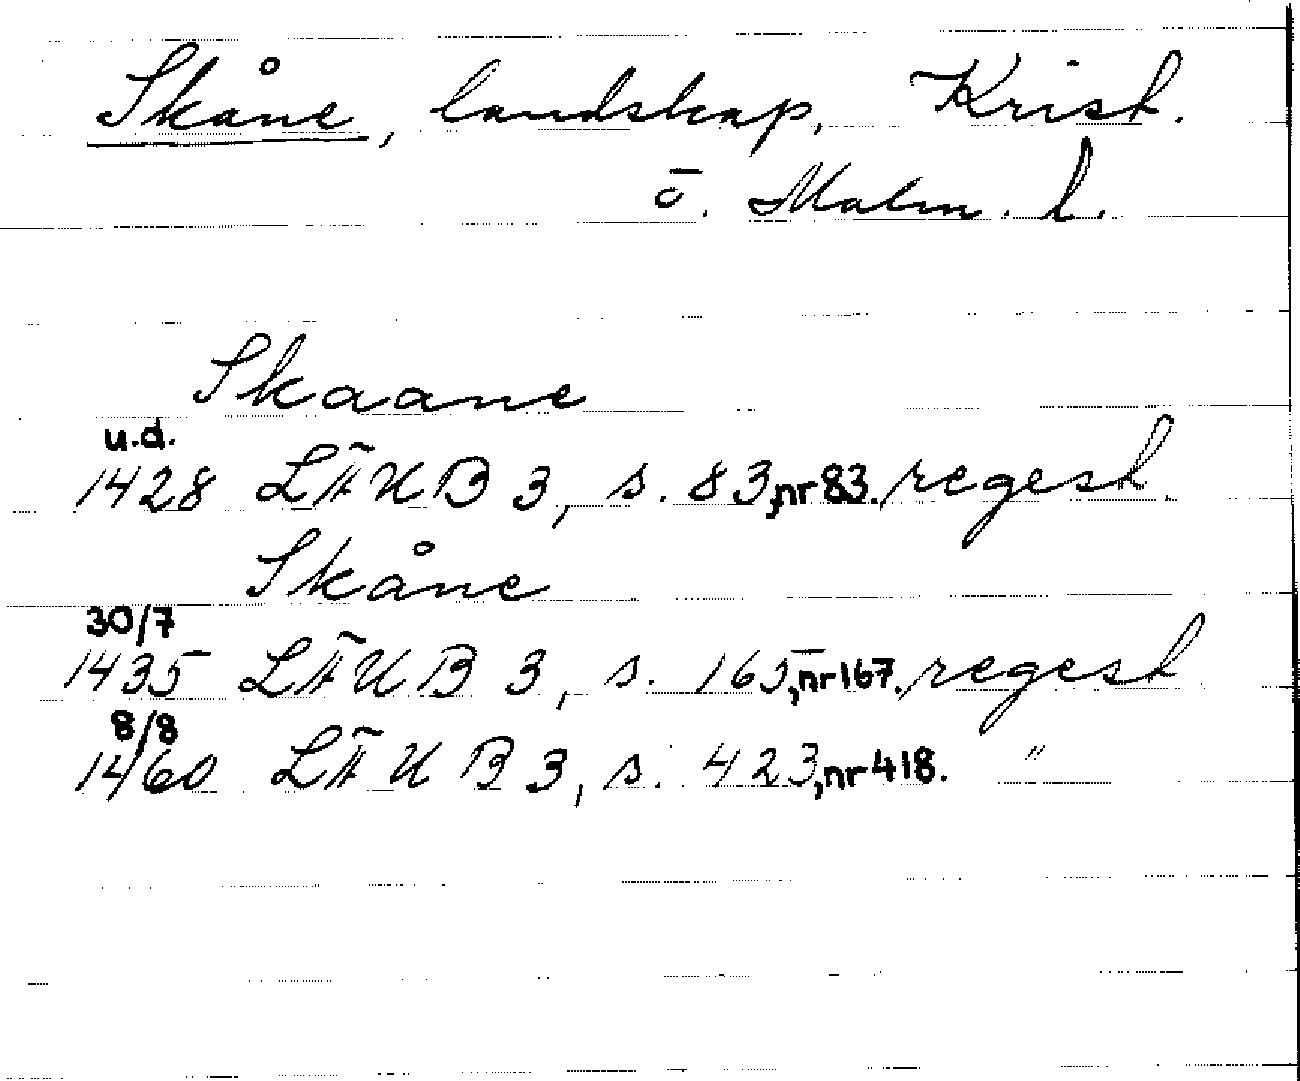 Skåne, landskap, Krist.
o. Malm. l.
Skaane
u.d.
1428 LÄUB 3, s. 83, nr 83. regest.
Skåne
30/7
1435 LÄUB 3, s. 165, nr 167. regest
8/8
1460 LÄUB 3, s. 423, nr 418. "